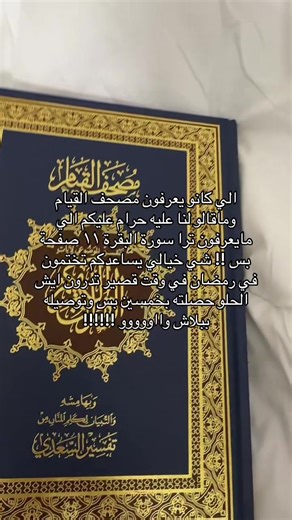 مصحف القيام
الي كانو يعرفون مصحف القيام
وماقالو لنا عليه حرام عليكم الي
مايعرفون ترا سورة البقرة ١١ صفحة
بس !! شي خيالي يساعدكم تختمون
في رمضان في وقت قصير تدرون ايش
الحلو حصلته بخمسين بس وتوصيله
ببلاش واااوووو !!!!!!
وبهامشه
تفسير السعدي